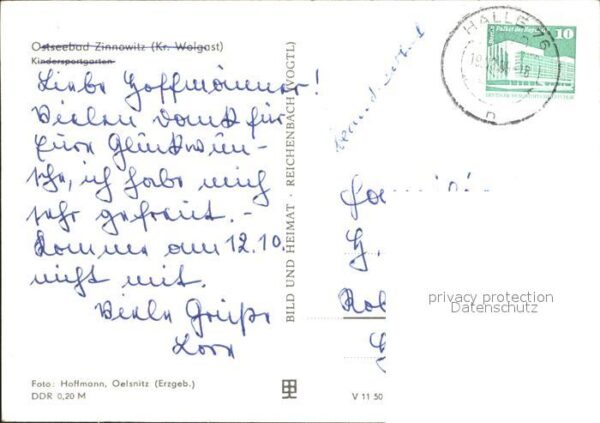 Ostseebad Zinnowitz (Kr. Wolgast)
Kindersportgarten
Liebe Hoffmänner!
Vielen Dank für
Eure Glückwün-
sche, ich habe mich
sehr gefreut. -
Komme am 12.10.
nicht mit.
Viele Grüße
Foto: Hoffmann, Oelsnitz (Erzgeb.)
DDR 0,20 M
BILD UND HEIMAT · REICHENBACH (VOGTL)
V 11 50
HALLE 76
n
10
privacy protection
Datenschutz